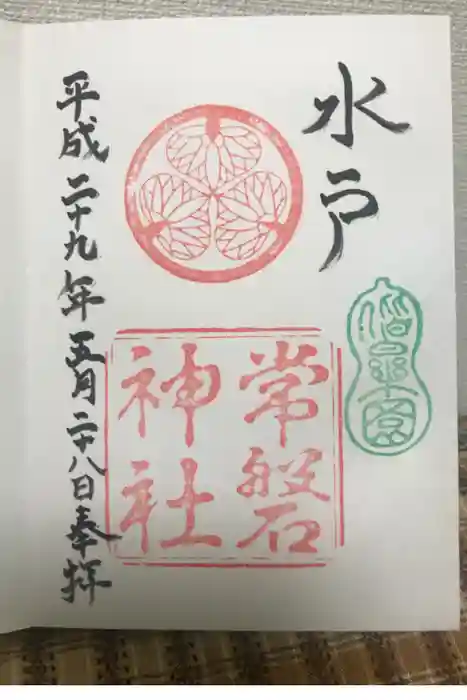 水戸
偕楽園
常磐
神社
平成二十九年五月二十八日奉拝